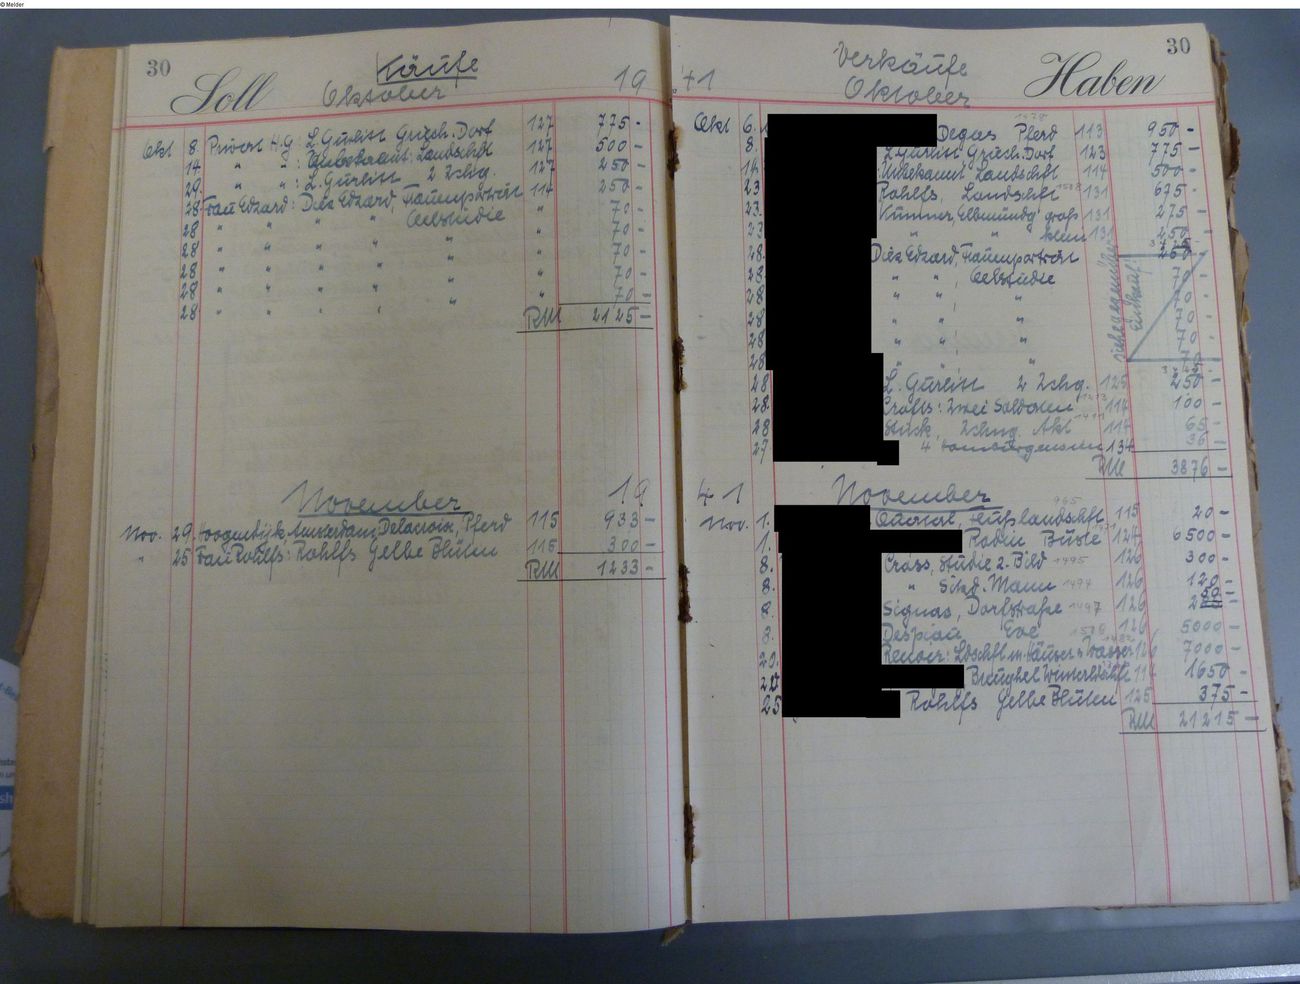 © Melder
30
Soll
Käufe
Oktober
19
Okt 8 Privat H.G: L. Gurlitt Griech. Dorf 127 775 -
14 " " : Unbekannt: Landschft 127 500 -
29. " " : L. Gurlitt 2 Zchg. 127 250 -
28 Frau Edzard: Dietz Edzard, Frauenporträt 114 250 -
28 " " " " Oelstudie " 70 -
28 " " " " " " 70 -
28 " " " " " " 70 -
28 " " " " " " 70 -
28 " " " " " " 70 -
RM 2125 -
November
19
Nov. 29. Hoogendijk Amsterdam, Delacroix, Pferd 115 933 -
" 25 Frau Rohlfs: Rohlfs Gelbe Blüten 115 300 -
RM 1233 -
30
Haben
Verkäufe
Oktober
41
Okt 6. Degas Pferd 113 950 -
8. L. Gurlitt Griech. Dorf 123 775 -
14. : Unbekannt Landschft 114 500 -
23 Rohlfs, Landschft 131 675 -
23. Kummer, Elbmündg groß 131 275 -
23 " " klein 131 250 -
28. Dietz Edzard, Frauenporträt 250 -
28. " " , Oelstudie 70 -
28 " " , " 70 -
28 " " , " 70 -
28 " " , " 70 -
28 " " , " 70 -
siehe gegenüber Einkauf
28 L. Gurlitt 2 Zchg. 125 250 -
28. Crofts: Zwei Soldaten 114 100 -
28 Stuck, Zchng. Akt 114 65 -
27 4 134 36 -
RM 3876 -
41
November
Nov. 1. 115 20 -
1. Rodin Büste 124 6500 -
8. Cross, Studie 2. Bild 1495 126 300 -
8. " Sitzd. Mann 126 120 -
8. Signac, Dorfstraße 1497 126 50 -
8. Despiau Eve 126 5000 -
20. Renoir: Ldschft m. Häuser u. Wasser 126 7000 -
Breughel Winterldschft 114 1650 -
25 Rohlfs Gelbe Blüten 125 375 -
RM 21215 -